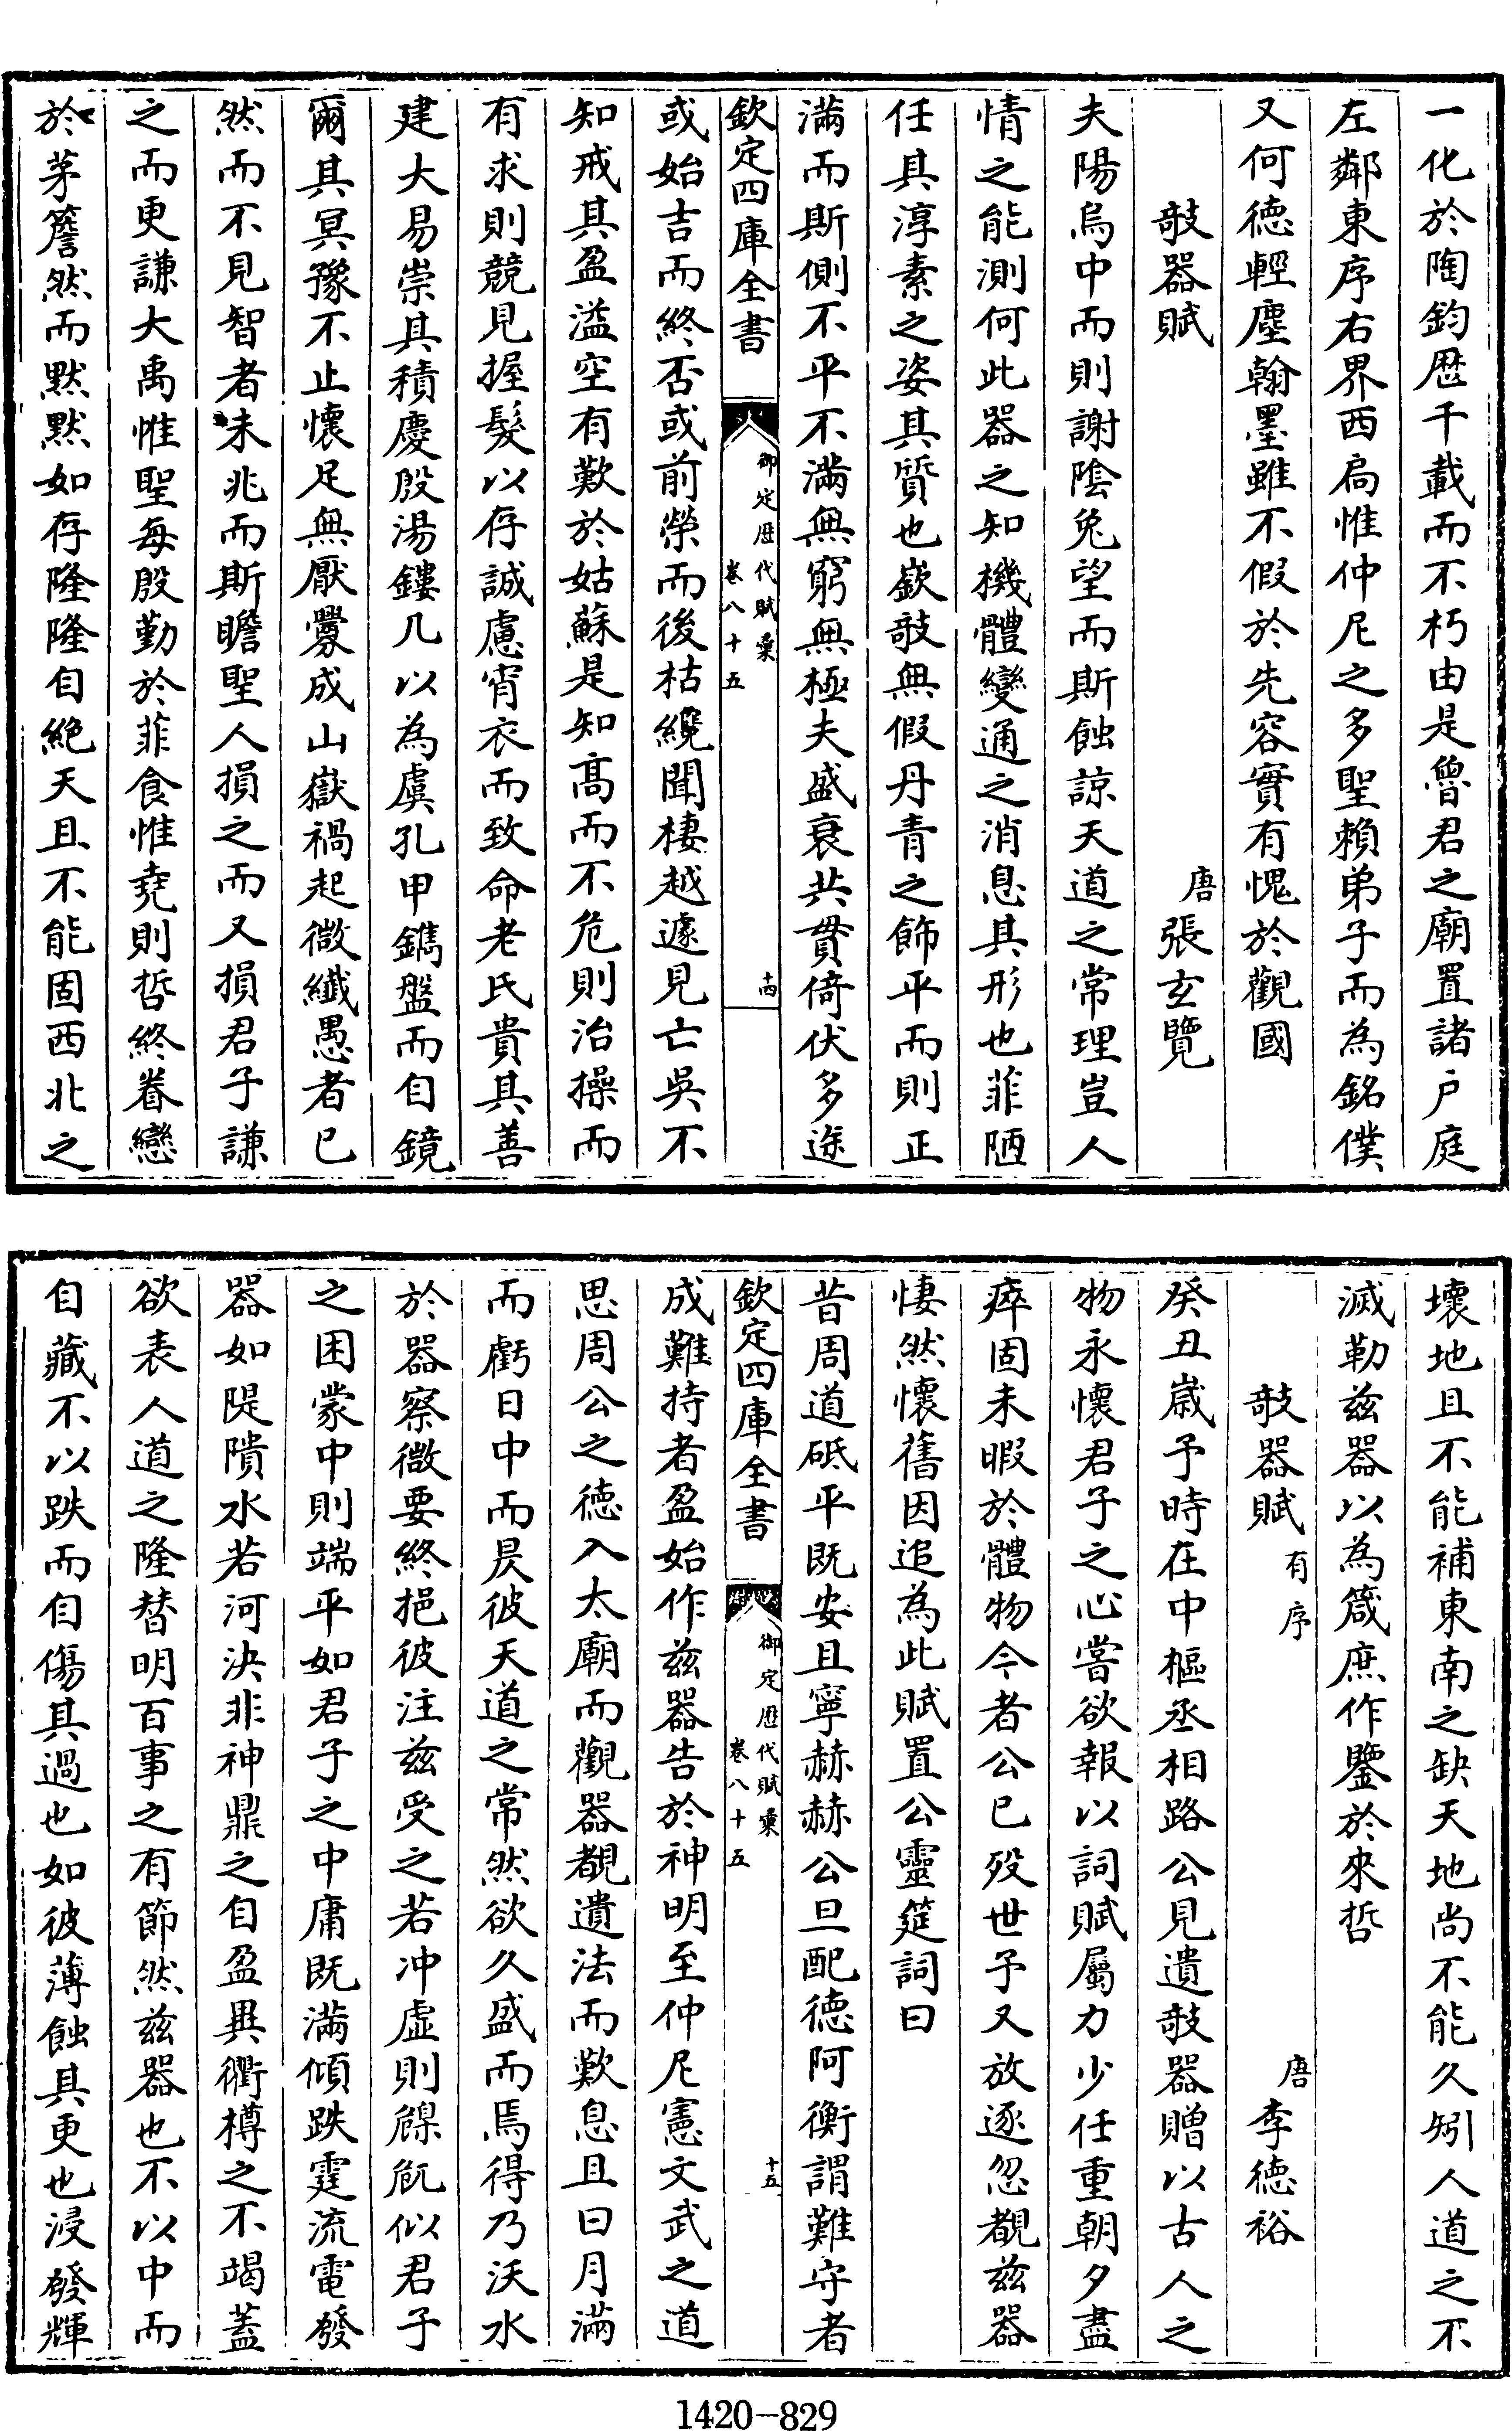 一化於陶鈞歴千載而不朽由是魯君之廟置諸户庭
左鄰東序右界西扃惟仲尼之多聖賴弟子而為銘僕
又何徳輕塵翰墨雖不假於先容實有愧於觀國
欹器賦　唐張玄覽
夫陽烏中而則謝陰兔望而斯蝕諒天道之常理豈人
情之能測何此器之知機體變通之消息其形也菲陋
任其淳素之姿其質也嶔欹無假丹青之飾平而則正
滿而斯側不平不滿無窮無極夫盛衰共貫倚伏多途
欽定四庫全書　御定歴代賦彙　卷八十五　十四
或始吉而終否或前榮而後枯纔聞棲越遽見亡吳不
知戒其盈溢空有歎於姑蘇是知高而不危則治操而
有求則競見握髮以存誠慮宵衣而致命老氏貴其善
建大易崇其積慶殷湯鏤几以為虞孔甲鐫盤而自鏡
爾其冥豫不止懷足無厭釁成山嶽禍起微纖愚者已
然而不見智者未兆而斯瞻聖人損之而又損君子謙
之而更謙大禹惟聖每殷勤於菲食惟堯則哲終眷戀
於茅簷然而默默如存隆隆自絶天且不能固西北之
壞地且不能補東南之缺天地尚不能久矧人道之不
滅勒兹器以為箴庶作鑒於來哲
欹器賦有序　唐李徳裕
癸丑歲予時在中樞丞相路公見遺欹器贈以古人之
物永懷君子之心嘗欲報以詞賦屬力少任重朝夕盡
瘁固未暇於體物今者公已歿世予又放逐忽覩兹器
悽然懷舊因追為此賦置公靈筵詞曰
昔周道砥平既安且寧赫赫公旦配徳阿衡謂難守者
欽定四庫全書　御定歴代賦彙　卷八十五　十五
成難持者盈始作兹器告於神明至仲尼憲文武之道
思周公之徳入太廟而觀器覩遺法而歎息且曰月滿
而虧日中而昃彼天道之常然欲久盛而焉得乃沃水
於器察微要終挹彼注兹受之若冲虛則臲卼似君子
之困蒙中則端平如君子之中庸既滿傾跌霆流電發
器如隄隤水若河決非神鼎之自盈異衢樽之不竭蓋
欲表人道之隆替明百事之有節然兹器也不以中而
自藏不以跌而自傷其過也如彼薄蝕其更也浸發輝
1420-829